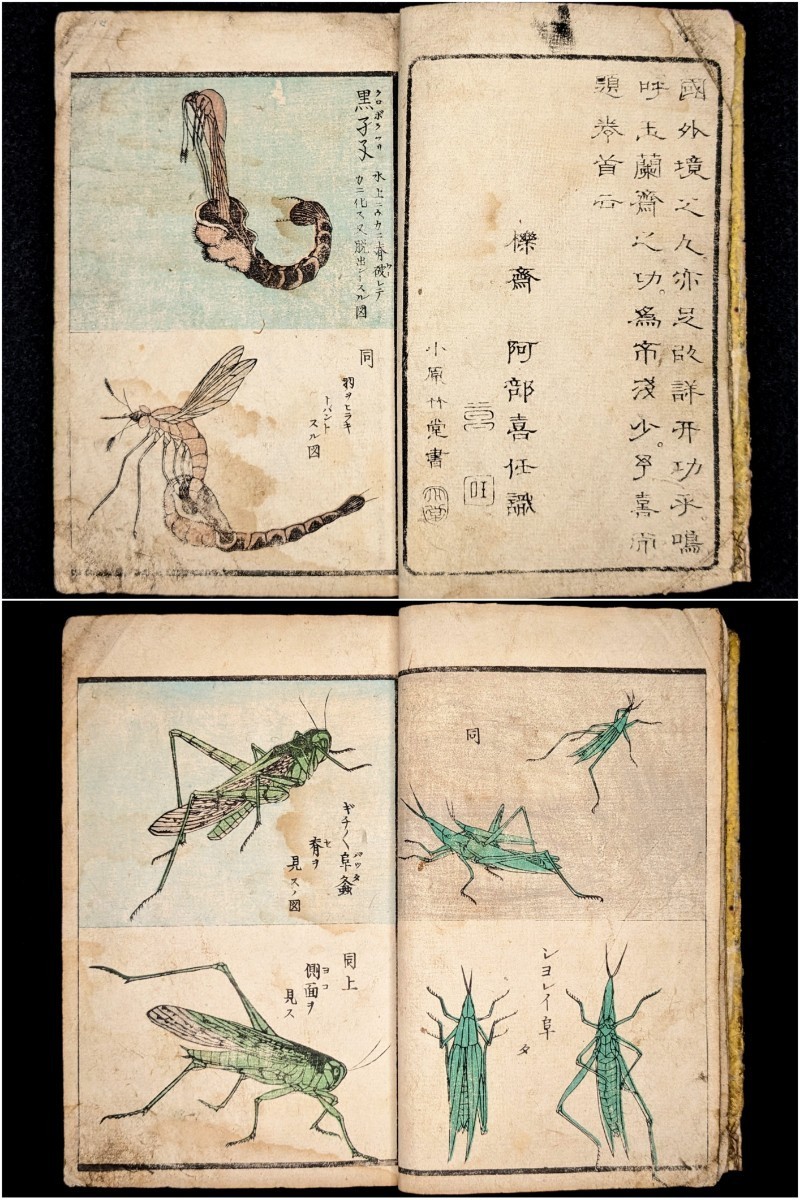 國外境之人亦足以詳开功乎。鳴
呼玉蘭齋之功。爲不淺少。予喜而
題巻首云
櫟齋 阿部喜任識
小原竹堂書
黒孑孑
水上ニウカミ脊破レテ
カニ化ス又脱出シスル図
同
羽ヲヒラキ
トバント
スル図
同
ギチ〱阜螽
バッタ
脊ヲ
セ
見ス図
同上
側面ヲ
ヨコ
見ス
シヨレイ阜
タ